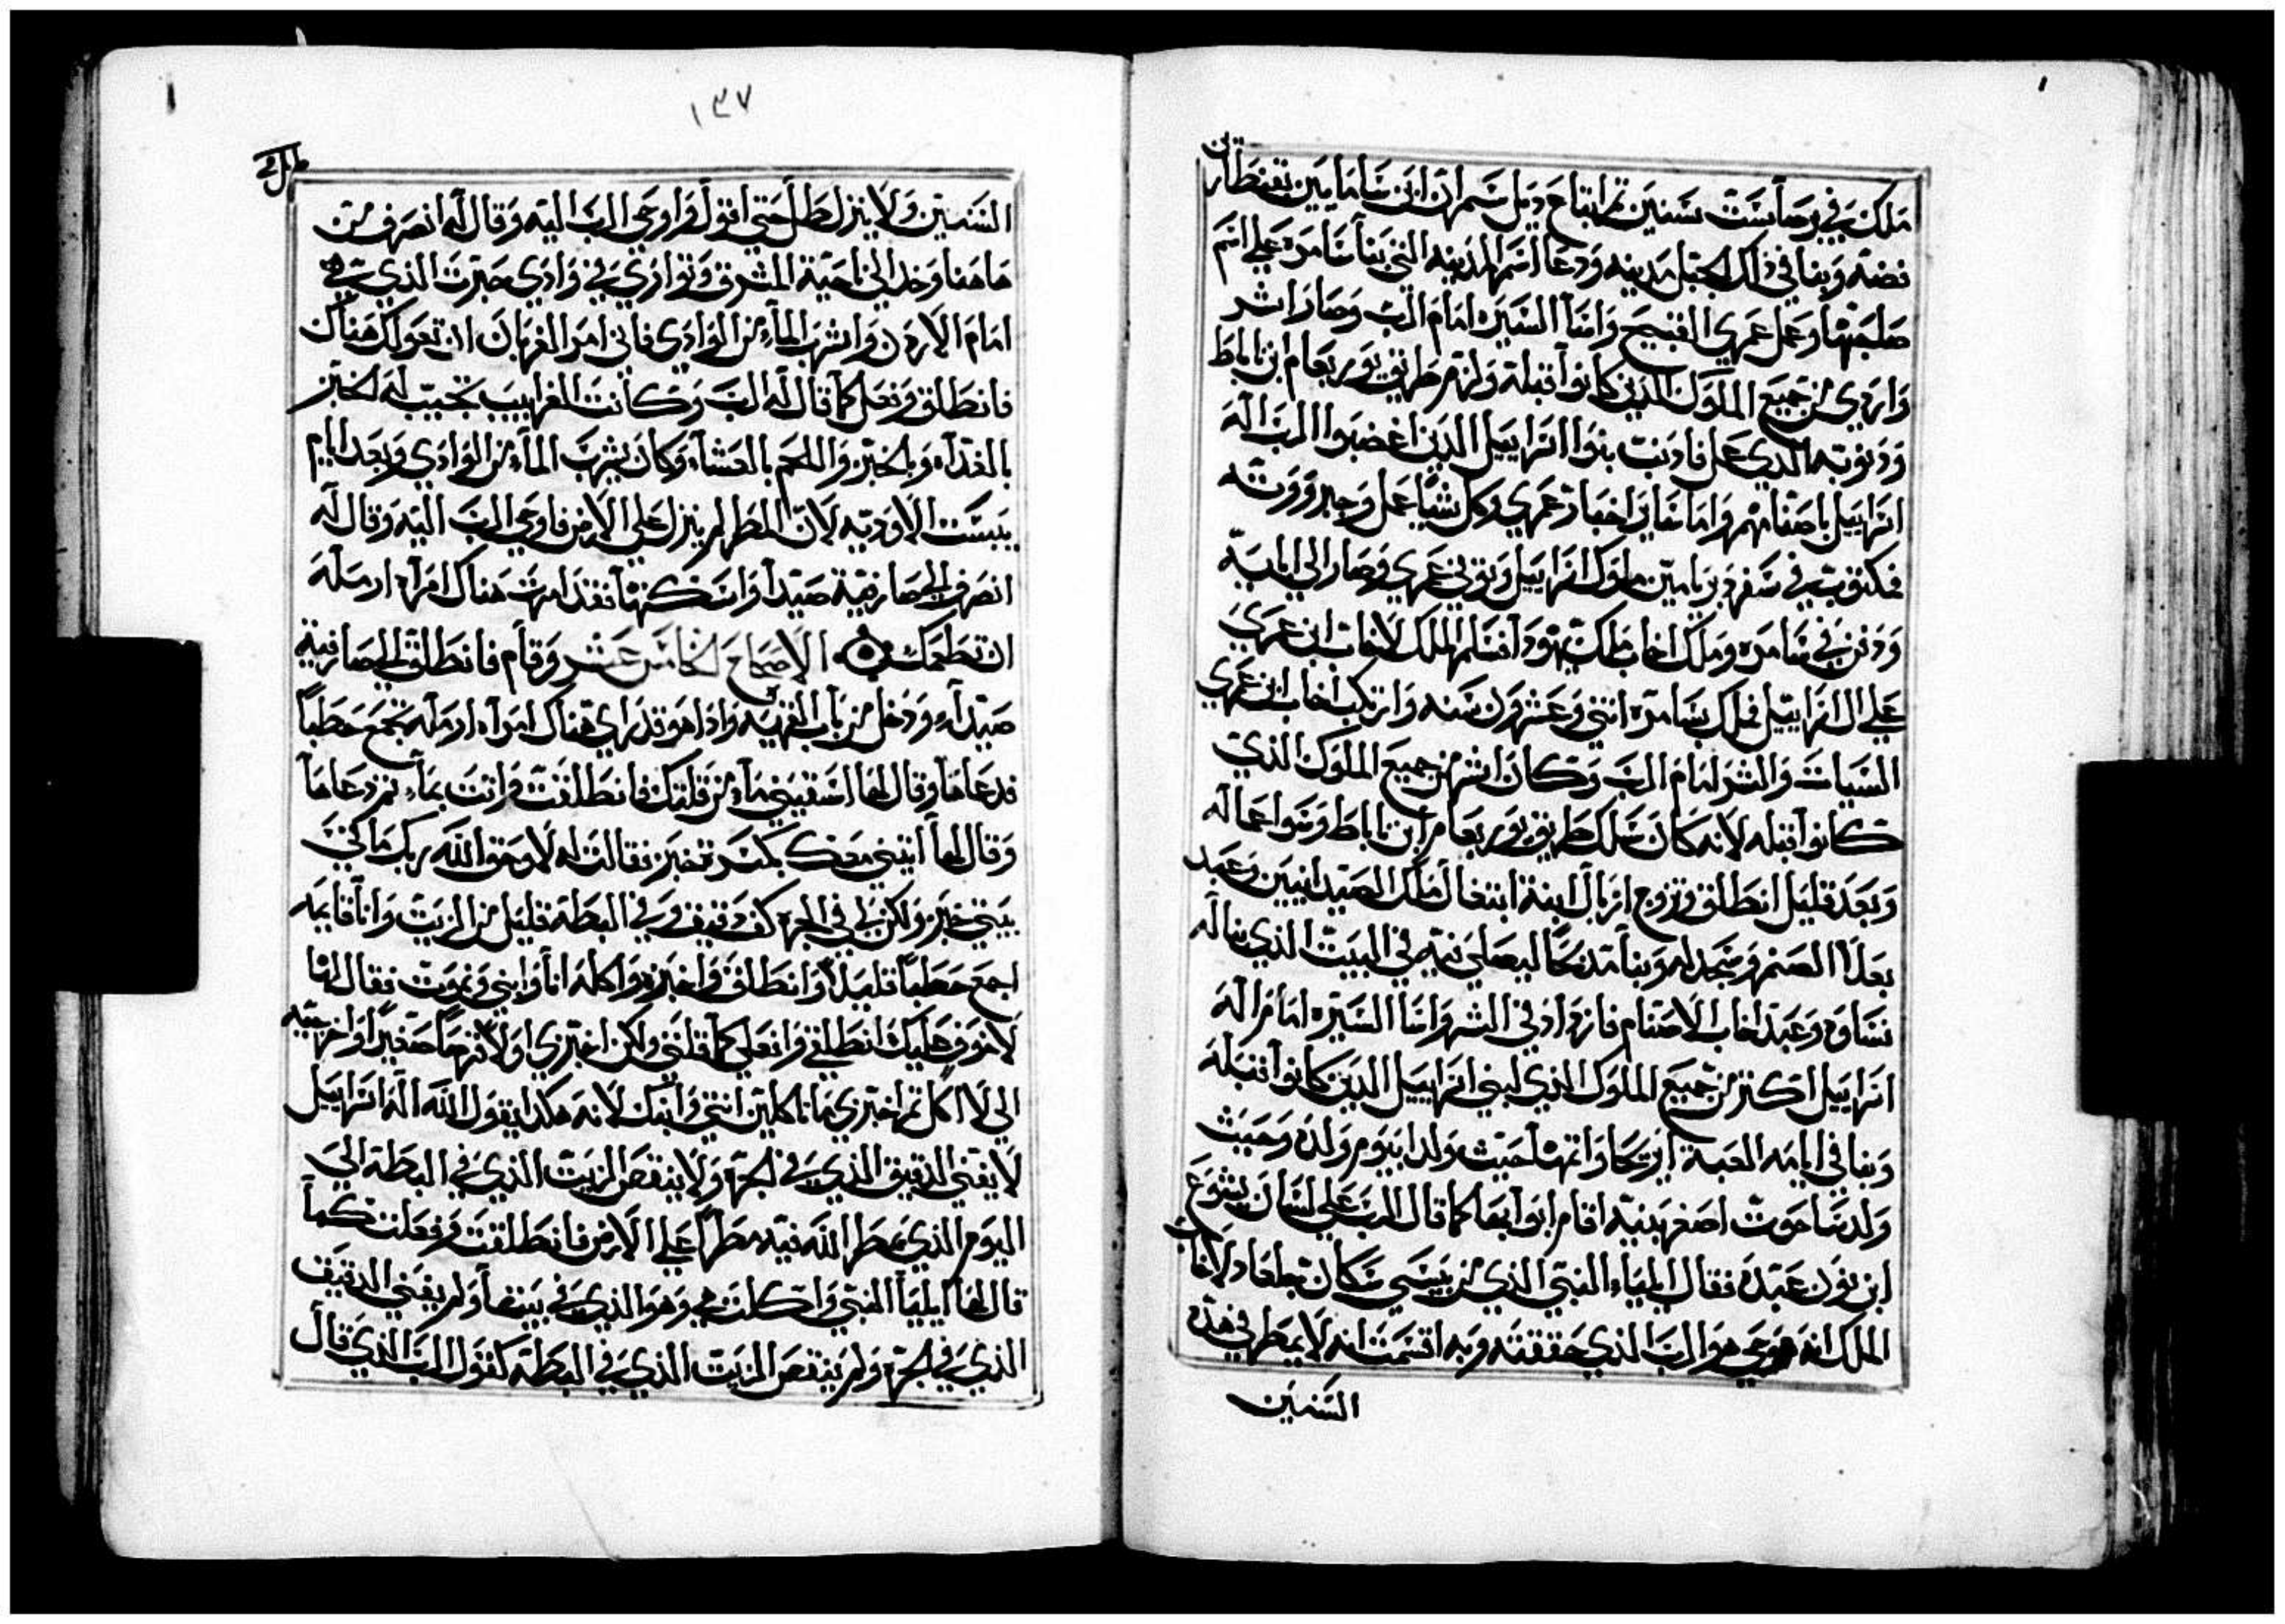 ملك في برصا ست سنين ثم ابتاع جبل شمران من سامر بقنطارين
فضه وبنا في ذلك الجبل مدينه ودعا اسم المدينه التي بنا سامره علي اسم
صاحبها وعمل عمري القبيح واسا السيره امام الرب وصار اشر
واردي من جميع الملوك الذين كانوا قبله ولزم طريق يوربعام ابن ناباط
وذنوبه الذي عمل فاذنب بنوا اسراييل الذين اغضبوا الرب اله
اسراييل باصنامهم واما ساير اخبار عمري وكل شيا عمل وجبروته
فمكتوبه في سفر دبريامين ملوك اسراييل وتوفي عمري وصار الي ابايه
ودفن في سامره وملك اخاب ملك يهودا اسا الملك لاخاب ابن عمري
علي ال اسراييل فملك بسامره اثني وعشرون سنه وارتكب اخاب ابن عمري
السيات والشر امام الرب وكان اشر من جميع الملوك الذي
كانوا قبله لانه كان سلك طريق يوربعام ابن ناباط وسوا اعماله
وبعد قليل انطلق وتزوج ازبال ابنة ابتعال ملك الصيدانيين وعبد
بعلا الصنم وسجد له وبنا مدبحا ليصلي فيه في البيت الذي بناله
نساوه وعبد اخاب الاصنام فازداد في الشر واسا السيره امام اله
اسراييل اكثر من جميع الملوك الذي لبني اسراييل الذين كانوا قبله
وبنا في ايامه العبة اريحا واتمها حيث ولد ابيرم ولده وحيث
ولد ساحوت اصغر بنيه اقام ابوابها كما قال الرب علي لسان يشوع
ابن نون عبده فقال ايلياء النبي الذي من يسي سكان جلعاد لاخاب
الملك انه هو حي هو الرب الذي حققته وبه اقسمت انه لا يمطر في هذه
السنين
١٣٧
السنين ولا ينزل طل حتي اقول واوحي الرب اليه وقال له انصرف من
هاهنا وخد الي ناحية المشرق وتواري في وادي حبرت الذي في
امام الاردن واشرب الماء من الوادي فاني امر الغربان ان تعولك هناك
فانطلق وفعل كما قال له الرب وكانت الغرابيب تجيب له الخبز
بالغداه وبالخبز واللحم بالعشاء وكان يشرب الماء من الوادي وبعد ايام
يبست الاوديه لان المطر لم ينزل علي الارض فاوحي الرب اليه وقال له
انصرف الي صارفية صيدا واسكنها فقد امرت هناك امراه ارمله
ان تطعمك الاصحاح الخامس عشر وقام فانطلق الي صارفية
صيداء ودخل من باب القريه واذا هو قد راي هناك امراه ارمله تجمع حطبا
فدعاها وقال لها اسقيني ماء من قلتك فانطلقت واتت بماء ثم دعاها
وقال لها ايتيني معك بكسرة خبز فقالت له لا وحق الله ربك ما كني
بيتي خبز ولكن لي في الجره كف دقيق وفي البطه قليل من الزيت وانا قايمه
اجمع حطبا قليلا وانطلق واخبزه واكله انا وابني ونموت فقال لها
لا خوف عليك انطلقي وافعلي كما قلتي ولكن اخبزي اولا قرصا صغيرا واخرجيه
الي لا اكل ثم اخبزي ما تاكلين انتي وابنك لانه هكدا يقول الله اله اسراييل
لا يفني الدقيق الذي في الجره ولا ينقص الزيت الذي في البطه الي
اليوم الذي يمطر الله فيه مطرا علي الارض فانطلقت وفعلت كما
قال لها ايليا النبي واكلت هي وهو الذي في بيتها ولم يفني الدقيق
الذي في الجره ولم ينقص الزيت الذي في البطه كقول الرب الذي قال